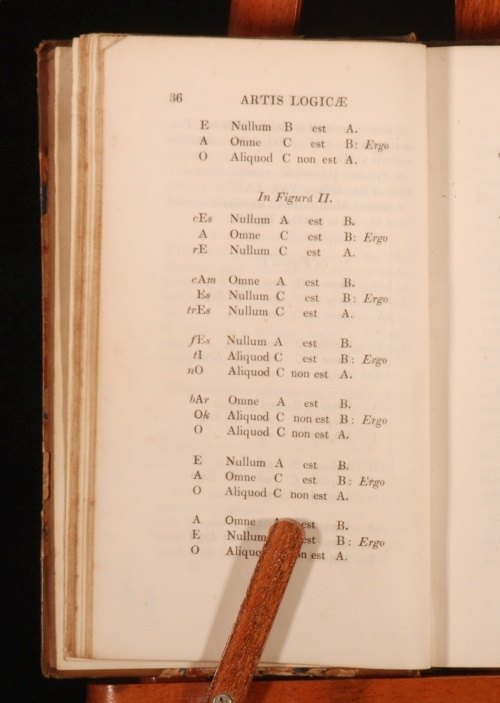 36 ARTIS LOGICÆ
E Nullum B est A.
A Omne C est B: Ergo
O Aliquod C non est A.
In Figurâ II.
cEs Nullum A est B.
A Omne C est B: Ergo
rE Nullum C est A.
cAm Omne A est B.
Es Nullum C est B: Ergo
trEs Nullum C est A.
fEs Nullum A est B.
tI Aliquod C est B: Ergo
nO Aliquod C non est A.
bAr Omne A est B.
Ok Aliquod C non est B: Ergo
O Aliquod C non est A.
E Nullum A est B.
A Omne C est B: Ergo
O Aliquod C non est A.
A Omne est B.
E Nullum est B: Ergo
O est A.